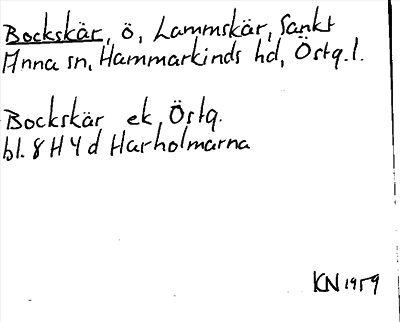 Bockskär, ö, Lammskär, Sankt
Anna sn, Hammarkinds hd, Östg.l.
Bockskär ek, Östg.
bl. 8 H 4 d Harholmarna
KN 1959